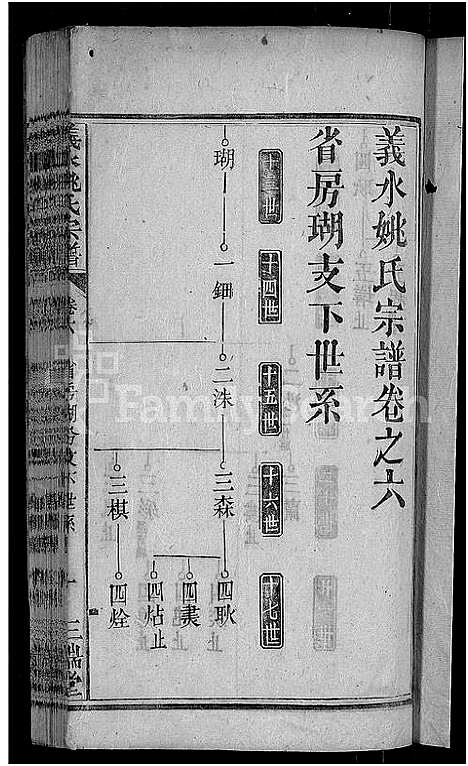 義水姚氏宗譜卷之六
省房瑚支下世系
十三世
十四世
十五世
十六世
十七世
瑚
一鈿
二洙
三森
四耿
四夷
四炶止
三棋
四烇
義水姚氏宗譜
卷六
省房瑚分支下世系
一
三瑞堂
FamilySearch